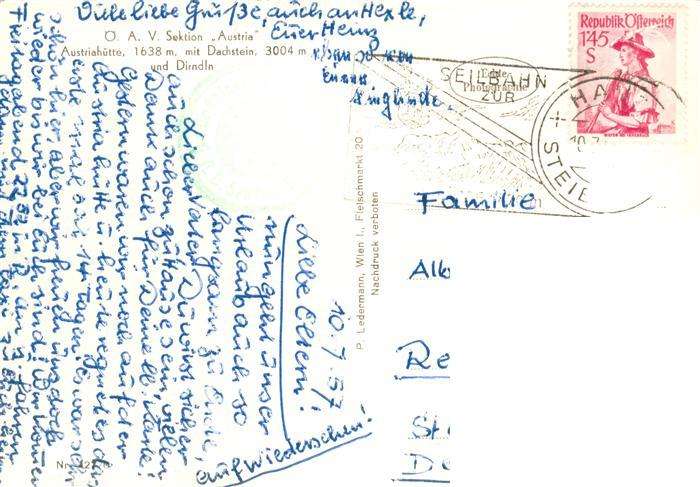 Viele liebe Grüße, auch an Hexle,
Euer Heinz
Ö. A. V. Sektion „Austria"
Austriahütte, 1638 m. mit Dachstein, 3004 m
und Dirndln
Republik Österreich
1'45
S
SEILBAHN
ZUR
Echte
Photographie
HA
STEIE
10.7.
P. Ledermann, Wien I., Fleischmarkt 20
Nachdruck verboten
Familie
Alb
Re
St
De
10.7.57
Liebe Eltern!
nun geht unser
Urlaub auch so
langsam zu Ende,
Lieber Vater Du wirst sicher
auch schon zu Hause sein, vielen
Dank auch für Deine lb. Karte!
Gestern waren wir noch auf der
Austriahütte u. heute regnet es das
erste mal seit 14 Tagen. Es war schön
schön hier, aber wir freuen uns doch
wieder bis wir bei Euch sind! Wir kommen
Freitag abend 22.32 an,
auf Wiedersehen!
Nr.